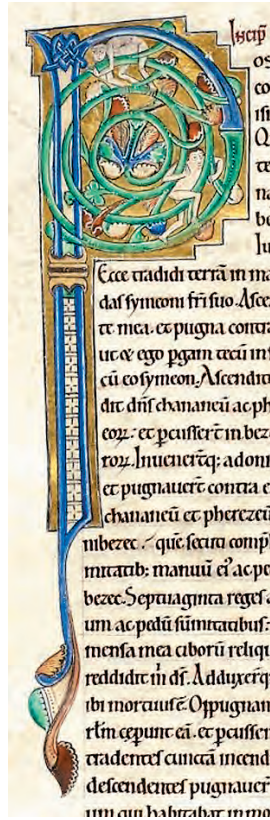 Incip̄
P
os
co
isr
Q
te
na
be
Iu
Ecce tradidi terrā in ma
das symeoni frī suo. Asce
te mea. et pugna contra
ut & ego pgam tecū in s
cū eo symeon. Ascendit
dit dn̄s chananeū ac ph
eoꝝ. et pcusser̄t in bez
roꝝ. Inuener̄tq; adoni
et pugnauer̄t contra e
chananeū et pherezeū
nibezec. que secuti comp̄
mitatib; manuū eiꝰ ac pe
bezec. Septuaginta reges a
um ac pedū sūmitatibus:
mensa mea ciborū reliqu
reddidit m̄ ds̄. Adduxer̄q
ibi mortuus ē. Oppugnan
rl̄m ceperunt eā. et pcusser
tradentes cunctā incend
descendentes pugnauer
um qui habitabat in mo